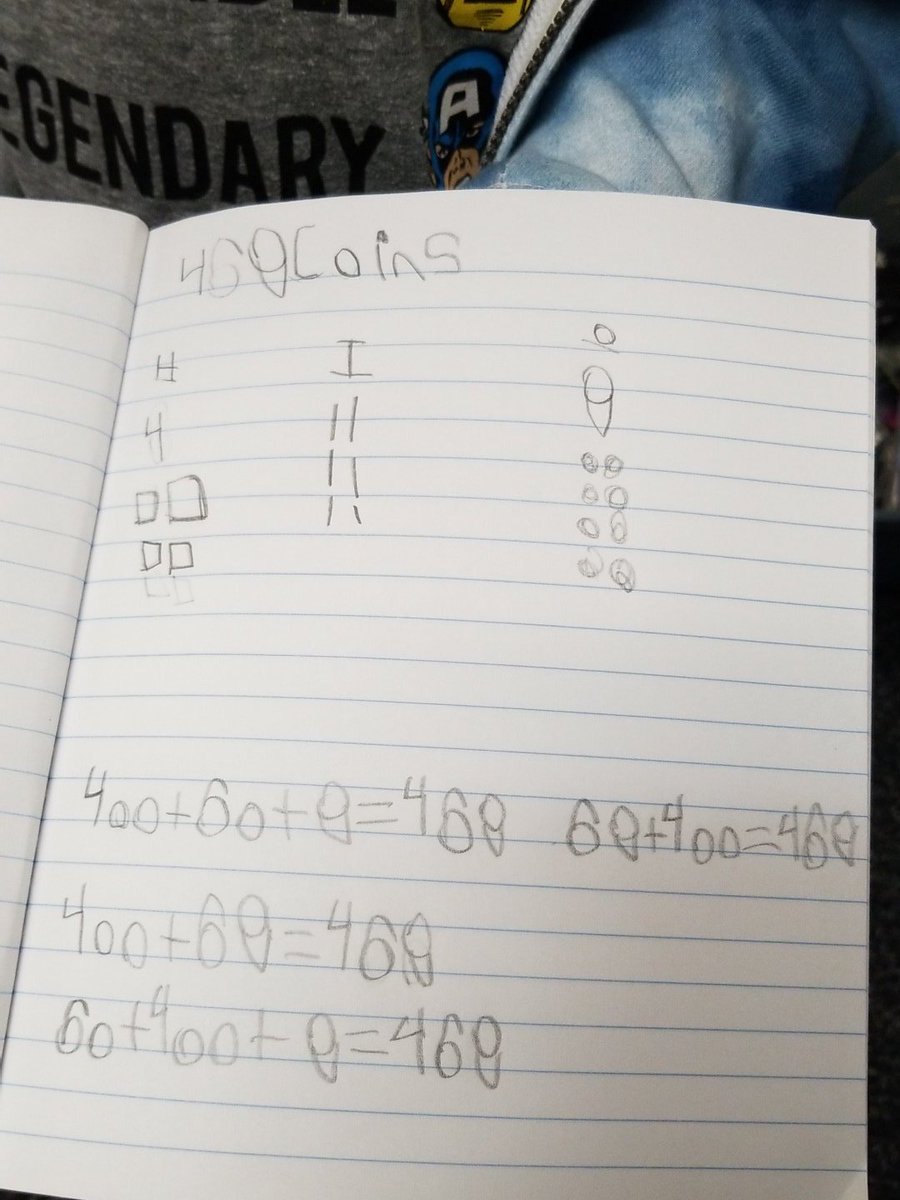 EGENDARY
A
468 Coins
H I o
4 8
400+60+8=468 68+400=468
400+68=468
60+400+8=468